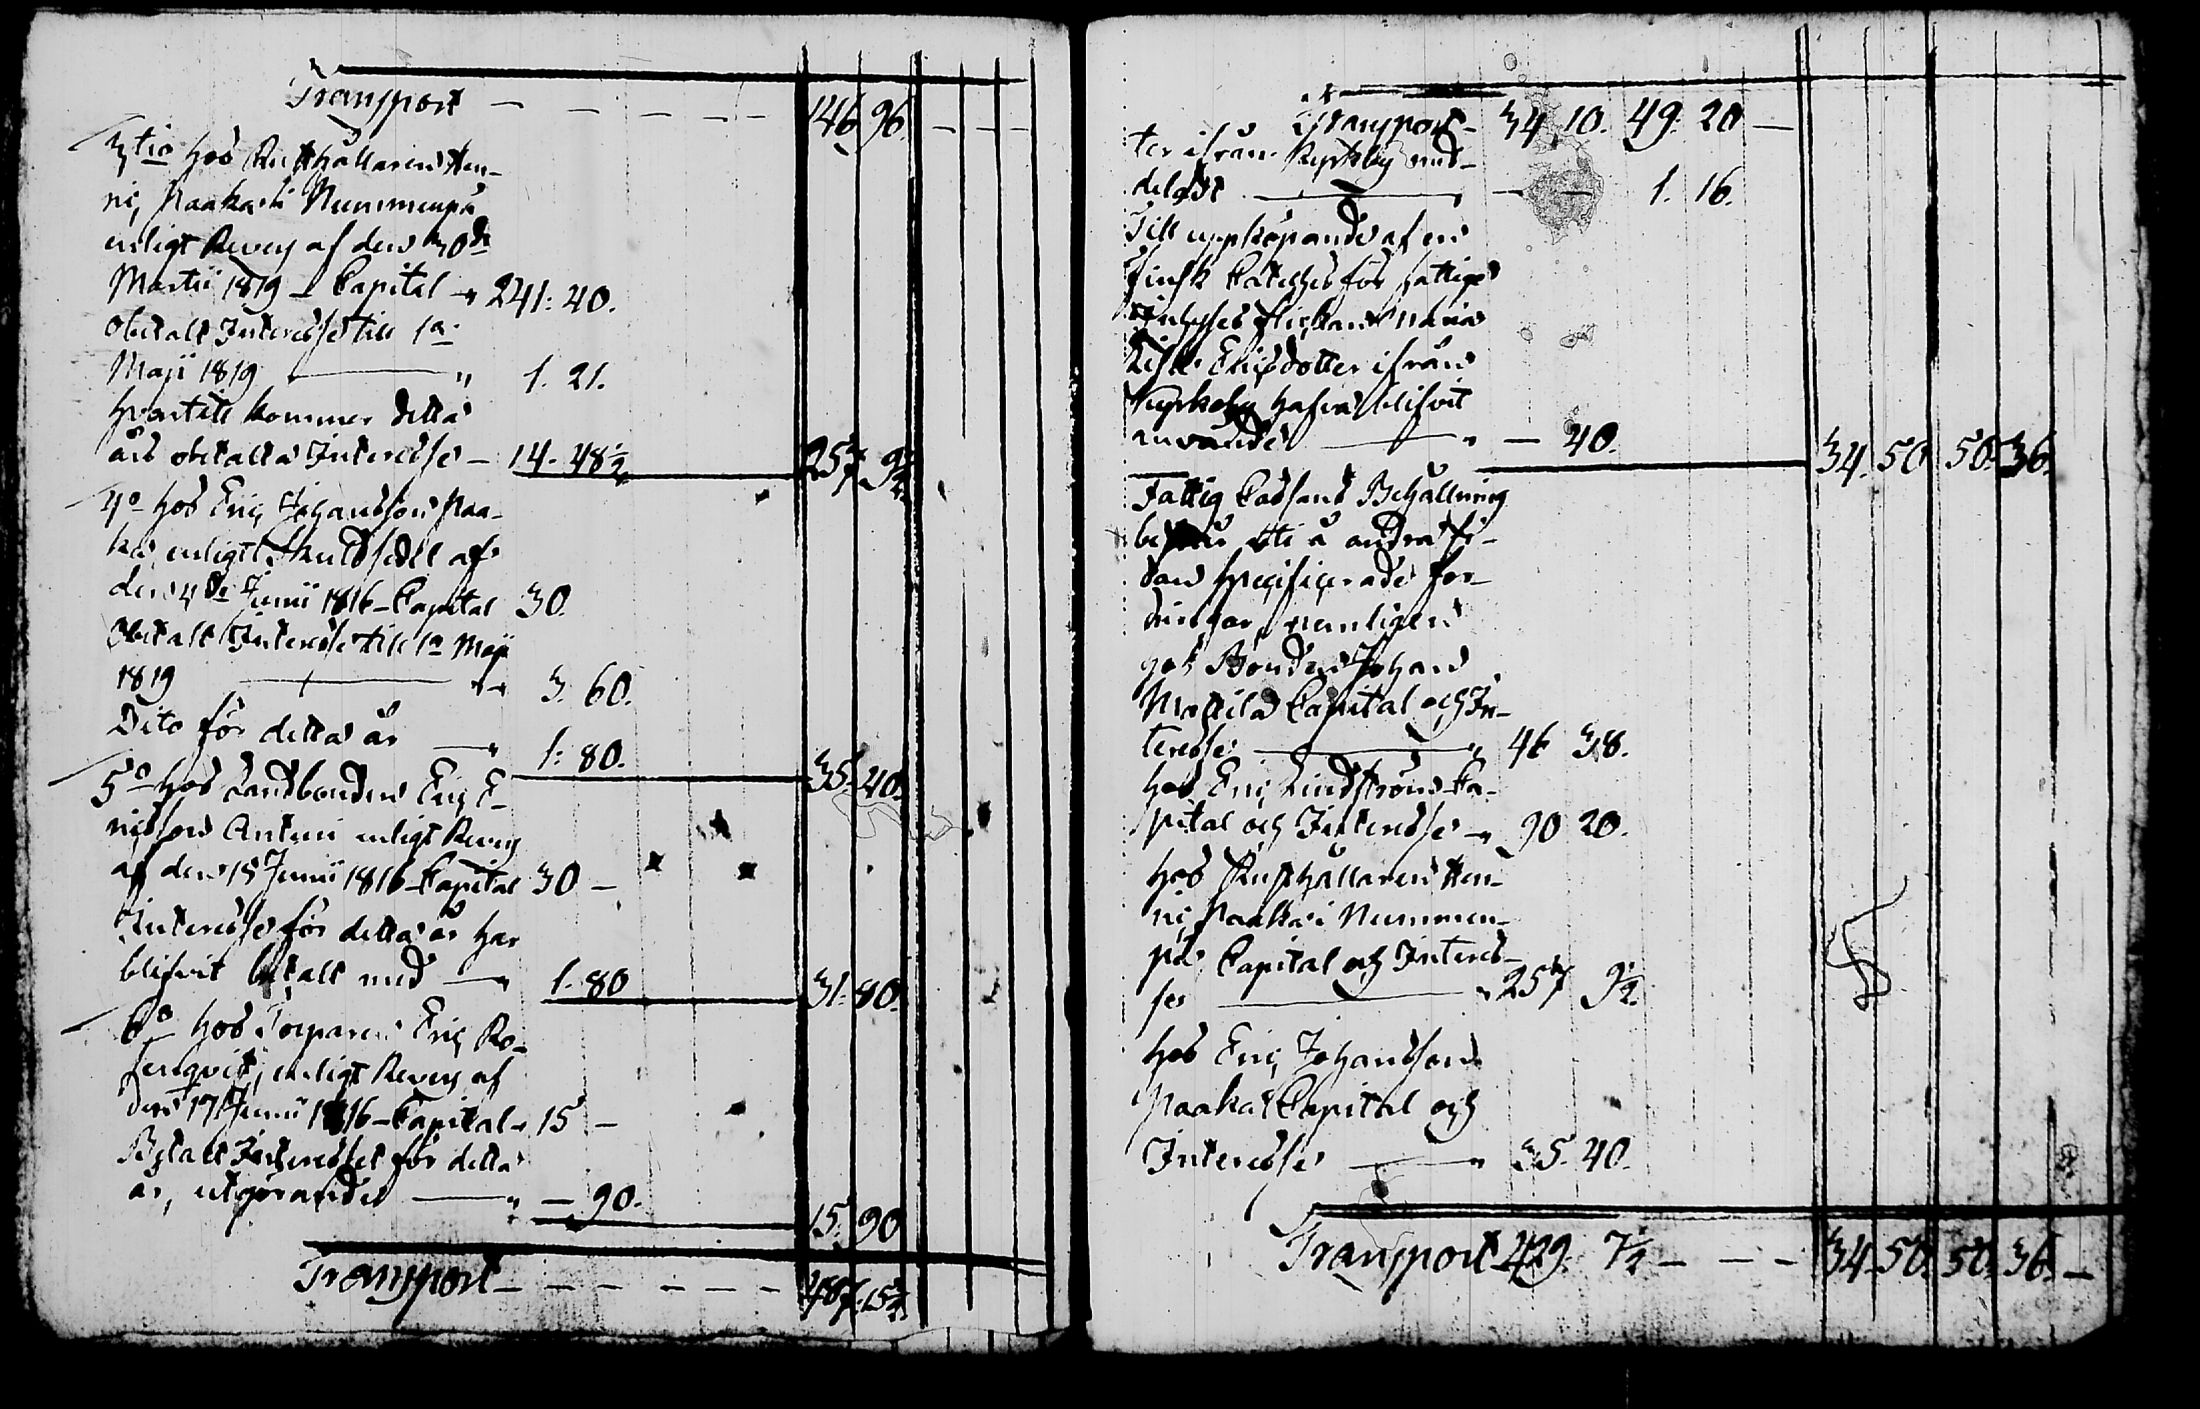 Transport - - - - - 146 96 - - -
3tio hos Rusthållaren Hen-
ric Naaka i Nummenpä
enligt Revers af den 30de
Martii 1819 - Capital - 241: 40.
Obetalt Interesse till 1a
Maji 1819 — " 1. 21.
Hvartill kommer detta
års obetalta Interesse - 14. 48½ 257. 9½.
4o hos Eric Johansson Naa-
ka, enligt Skuldsedel af
den 4de Junii 1816 - Capital 30.
Obetalt Interesse till 1a Maji
1819 — " 3. 60.
Dito för detta år — " 1: 80. 35. 40.
5o hos Landbonden Eric E-
ricsson Anttini enligt Revers
af den 15 Junii 1816 - Capital 30 -
Interesse för detta år har
blifvit betalt med — " 1. 80 31. 80.
6o hos Torparen Eric Ro-
senqvist, enligt Revers af
den 17 Junii 1816 - Capital - 15 -
Betalt Interesset för detta
år, utgörande — " - 90. 15. 90
Transport - - - - - - 487. 15½.
Transport - 34. 10. 49. 20 —
ter ifrån Kyrkby med-
deladt — 1. 16.
Till uppköpande af en
Finsk Cateches för fattige
Inhyses flickan Maria
Lisa Ericsdotter ifrån
Kyrkoby hafva blifvit
använde — " - 40. 34. 50. 50. 36.
Fattig Cassans Behållning
består uti å andra si-
dan specificerade for-
dringar, nemligen
hos Bonden Johan
Mattila Capital och In-
teresse — " 46 38.
hos Eric Lindström Ca-
pital och Interesse - " 90 20.
hos Rusthållaren Hen-
ric Naaka i Nummen-
pä Capital och Interes-
ser — " 257 9½.
hos Eric Johansson
Naaka Capital och
Interesse — " 35. 40.
Transport 429. 7½ - - - 34. 50. 50. 36. -